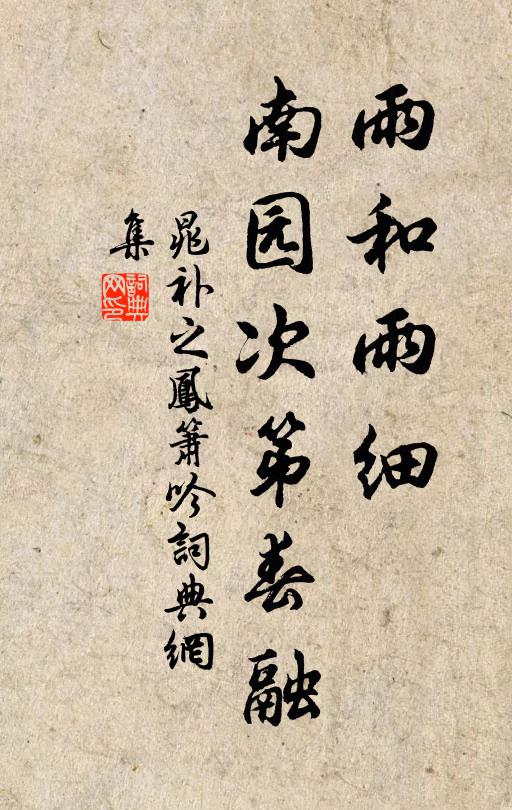 雨和雨细
南园次第春融
晁补之鳳箫吟詞典網
集
詞典网印